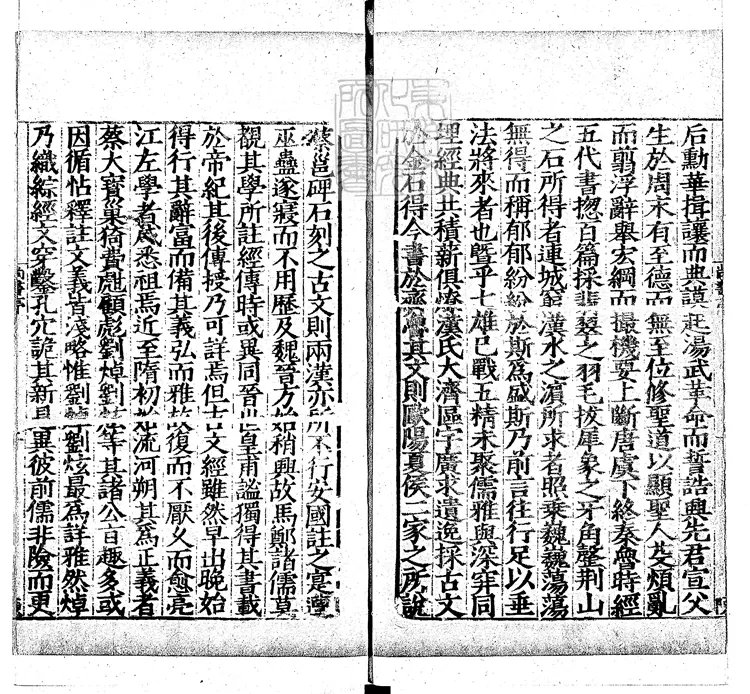 后勳華揖讓而典謨起湯武革命而誓誥興先君宣父
生於周末有至德而無至位修聖道以顯聖人芟煩亂
而翦浮辭舉宏綱而撮機要上斷唐虞下終秦魯時經
五代書揔百篇採翡翠之羽毛拔犀象之牙角罄荊山
之石所得者連城窮漢水之濵所求者照乗巍巍蕩蕩
無得而稱郁郁紛紛於斯爲盛斯乃前言往行足以垂
法將來者也曁乎七雄已戰五精未聚儒雅與深穽同
埋經典共積薪俱燎漢氏大濟區宇廣求遺逸採古文
於金石得今書於齊魯其文則歐陽夏侯二家之所說
蔡邕碑石刻之古文則兩漢亦所不行安國註之寔遭
巫蠱遂寢而不用歷及魏晉方始稍興故馬鄭諸儒莫
覩其學所註經傳時或異同晉世皇甫謐獨得其書載
於帝紀其後傳授乃可詳焉但古文經雖然早出晚始
得行其辭富而備其義弘而雅故復而不厭久而愈亮
江左學者咸悉祖焉近至隋初始流河朔其爲正義者
蔡大寳巢猗費甝顧彪劉焯劉炫等其諸公㫖趣多或
因循怗釋註文義皆淺略惟劉焯劉炫最爲詳雅然焯
乃織綜經文穿鑿孔穴詭其新見異彼前儒非險而更